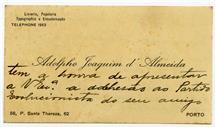 Livraria, Papelaria
Typographia e Encadernação
TELEPHONE 1953
Adolpho Joaquim d'Almeida
tem a honra de apresentar
a V. Ex.ª a adhesão ao Partido
Evolucionista do seu amigo
56, P. Santa Thereza, 62
PORTO